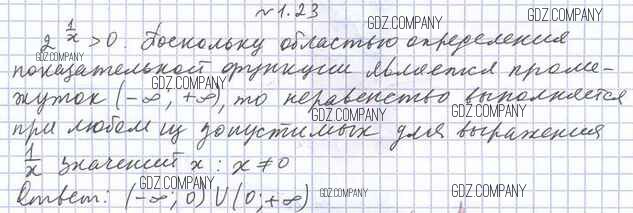 № 1.23
2^(1/x) > 0. Поскольку областью определения
показательной функции является проме-
жуток (-∞; +∞), то неравенство выполняется
при любом из допустимых для выражения
1/x значений x: x ≠ 0
Ответ: (-∞; 0) U (0; +∞)
GDZ.COMPANY
GDZ.COMPANY
GDZ.COMPANY
GDZ.COMPANY
GDZ.COMPANY
GDZ.COMPANY
GDZ.COMPANY
GDZ.COMPANY
GDZ.COMPANY
GDZ.COMPANY
GDZ.COMPANY
GDZ.COMPANY